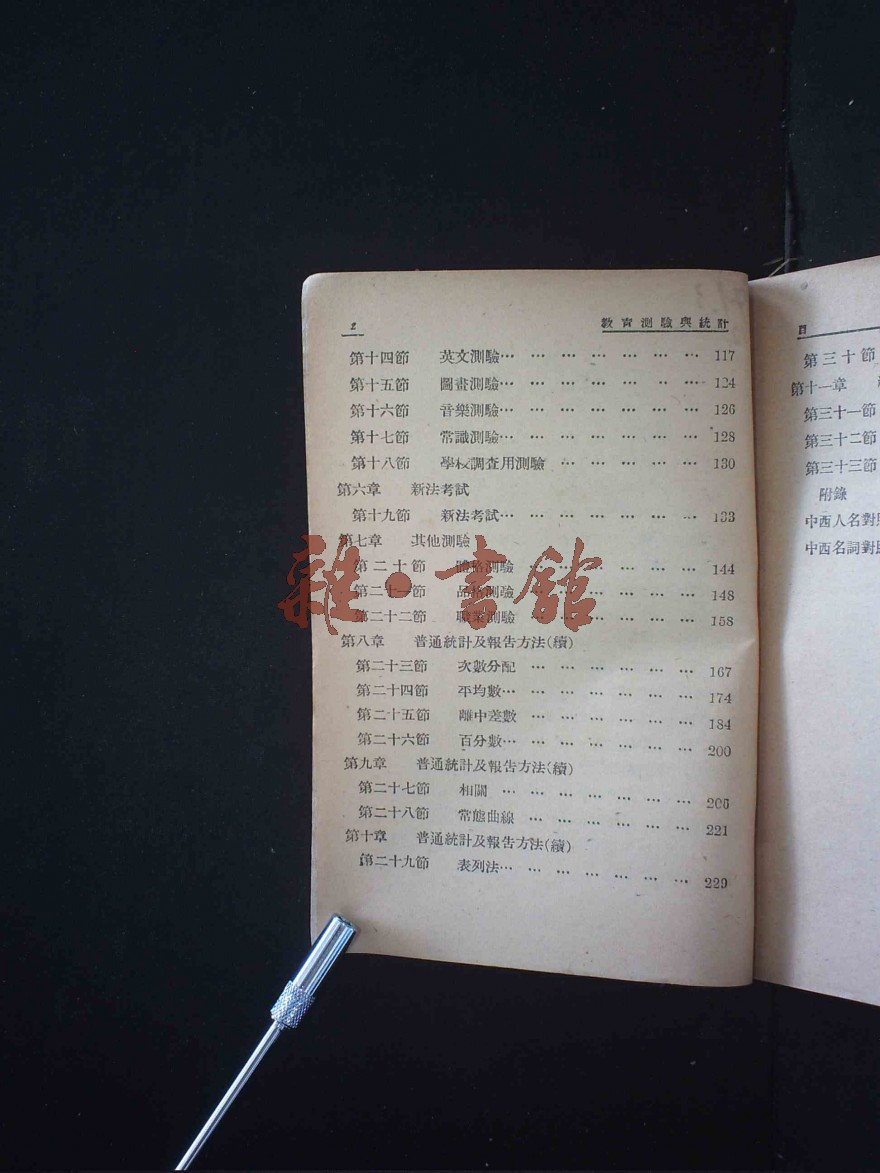 2 教育測驗與統計
第十四節 英文測驗… … … … … … … 117
第十五節 圖畫測驗… … … … … ‥ … 124
第十六節 音樂測驗… … … … … … … 126
第十七節 常識測驗… … … … … … … 128
第十八節 學校調查用測驗 … … … … … 130
第六章 新法考試
第十九節 新法考試… … … … … … … 133
第七章 其他測驗
第二十節 體格測驗 … … … … … … 144
第二十一節 品格測驗 … … … … … … 148
第二十二節 職業測驗 … … … … … … 158
第八章 普通統計及報告方法(續)
第二十三節 次數分配 … … … … … … 167
第二十四節 平均數… … … … … … … 174
第二十五節 離中差數 … … … … … … 184
第二十六節 百分數… … … … … … … 200
第九章 普通統計及報告方法(續)
第二十七節 相關 … … … … … … … 206
第二十八節 常態曲線 … … … … … … 221
第十章 普通統計及報告方法(續)
第二十九節 表列法… … … … … … … 229
雜·書館
目
第三十節
第十一章
第三十一節
第三十二節
第三十三節
附錄
中西人名對照
中西名詞對照